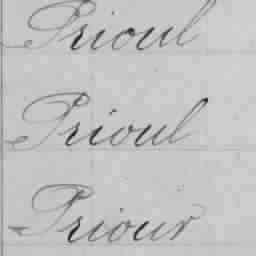 Prioul
Prioul
Priour